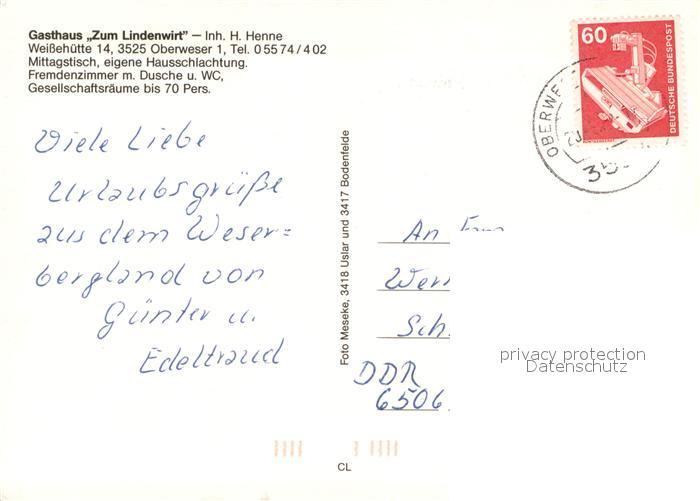 Gasthaus „Zum Lindenwirt" – Inh. H. Henne
Weißehütte 14, 3525 Oberweser 1, Tel. 0 55 74 / 4 02
Mittagstisch, eigene Hausschlachtung.
Fremdenzimmer m. Dusche u. WC,
Gesellschaftsräume bis 70 Pers.
60
DEUTSCHE BUNDESPOST
OBERWE
Viele Liebe
Urlaubsgrüße
aus dem Weser=
bergland von
Günter u.
Edeltraud
Foto Meseke, 3418 Uslar und 3417 Bodenfelde
An
Wer
Sch.
DDR
6506
privacy protection
Datenschutz
CL